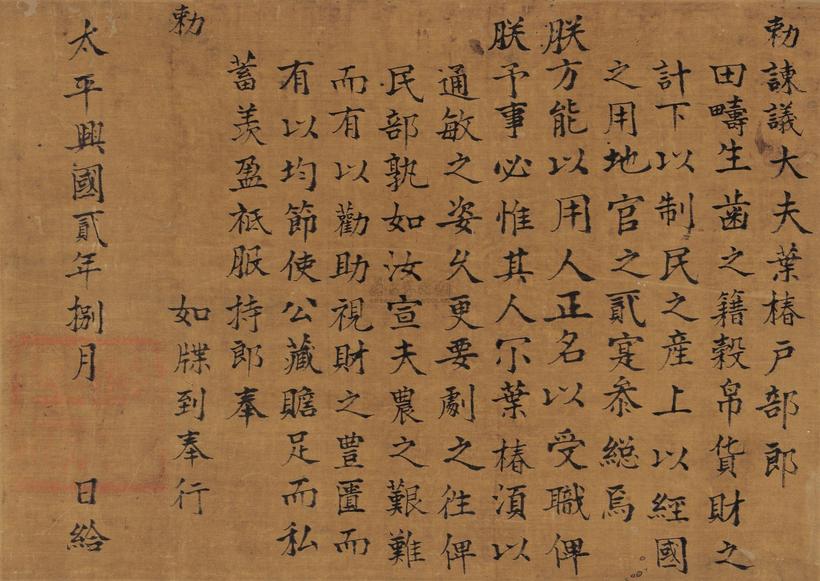 勅諫議大夫葉椿户部郎
田疇生齒之籍穀帛貨財之
計下以制民之産上以經國
之用地官之貳寔叅緫焉
朕方能以用人正名以受職俾
朕予事必惟其人尔葉椿須以
通敏之姿乆更要劇之往俾
民部孰如汝宣夫農之艱難
而有以勸助視財之豐匱而
有以均節使公藏贍足而私
蓄羡盈祗服持郎奉
如牒到奉行
勅
太平興國貳年捌月 日給